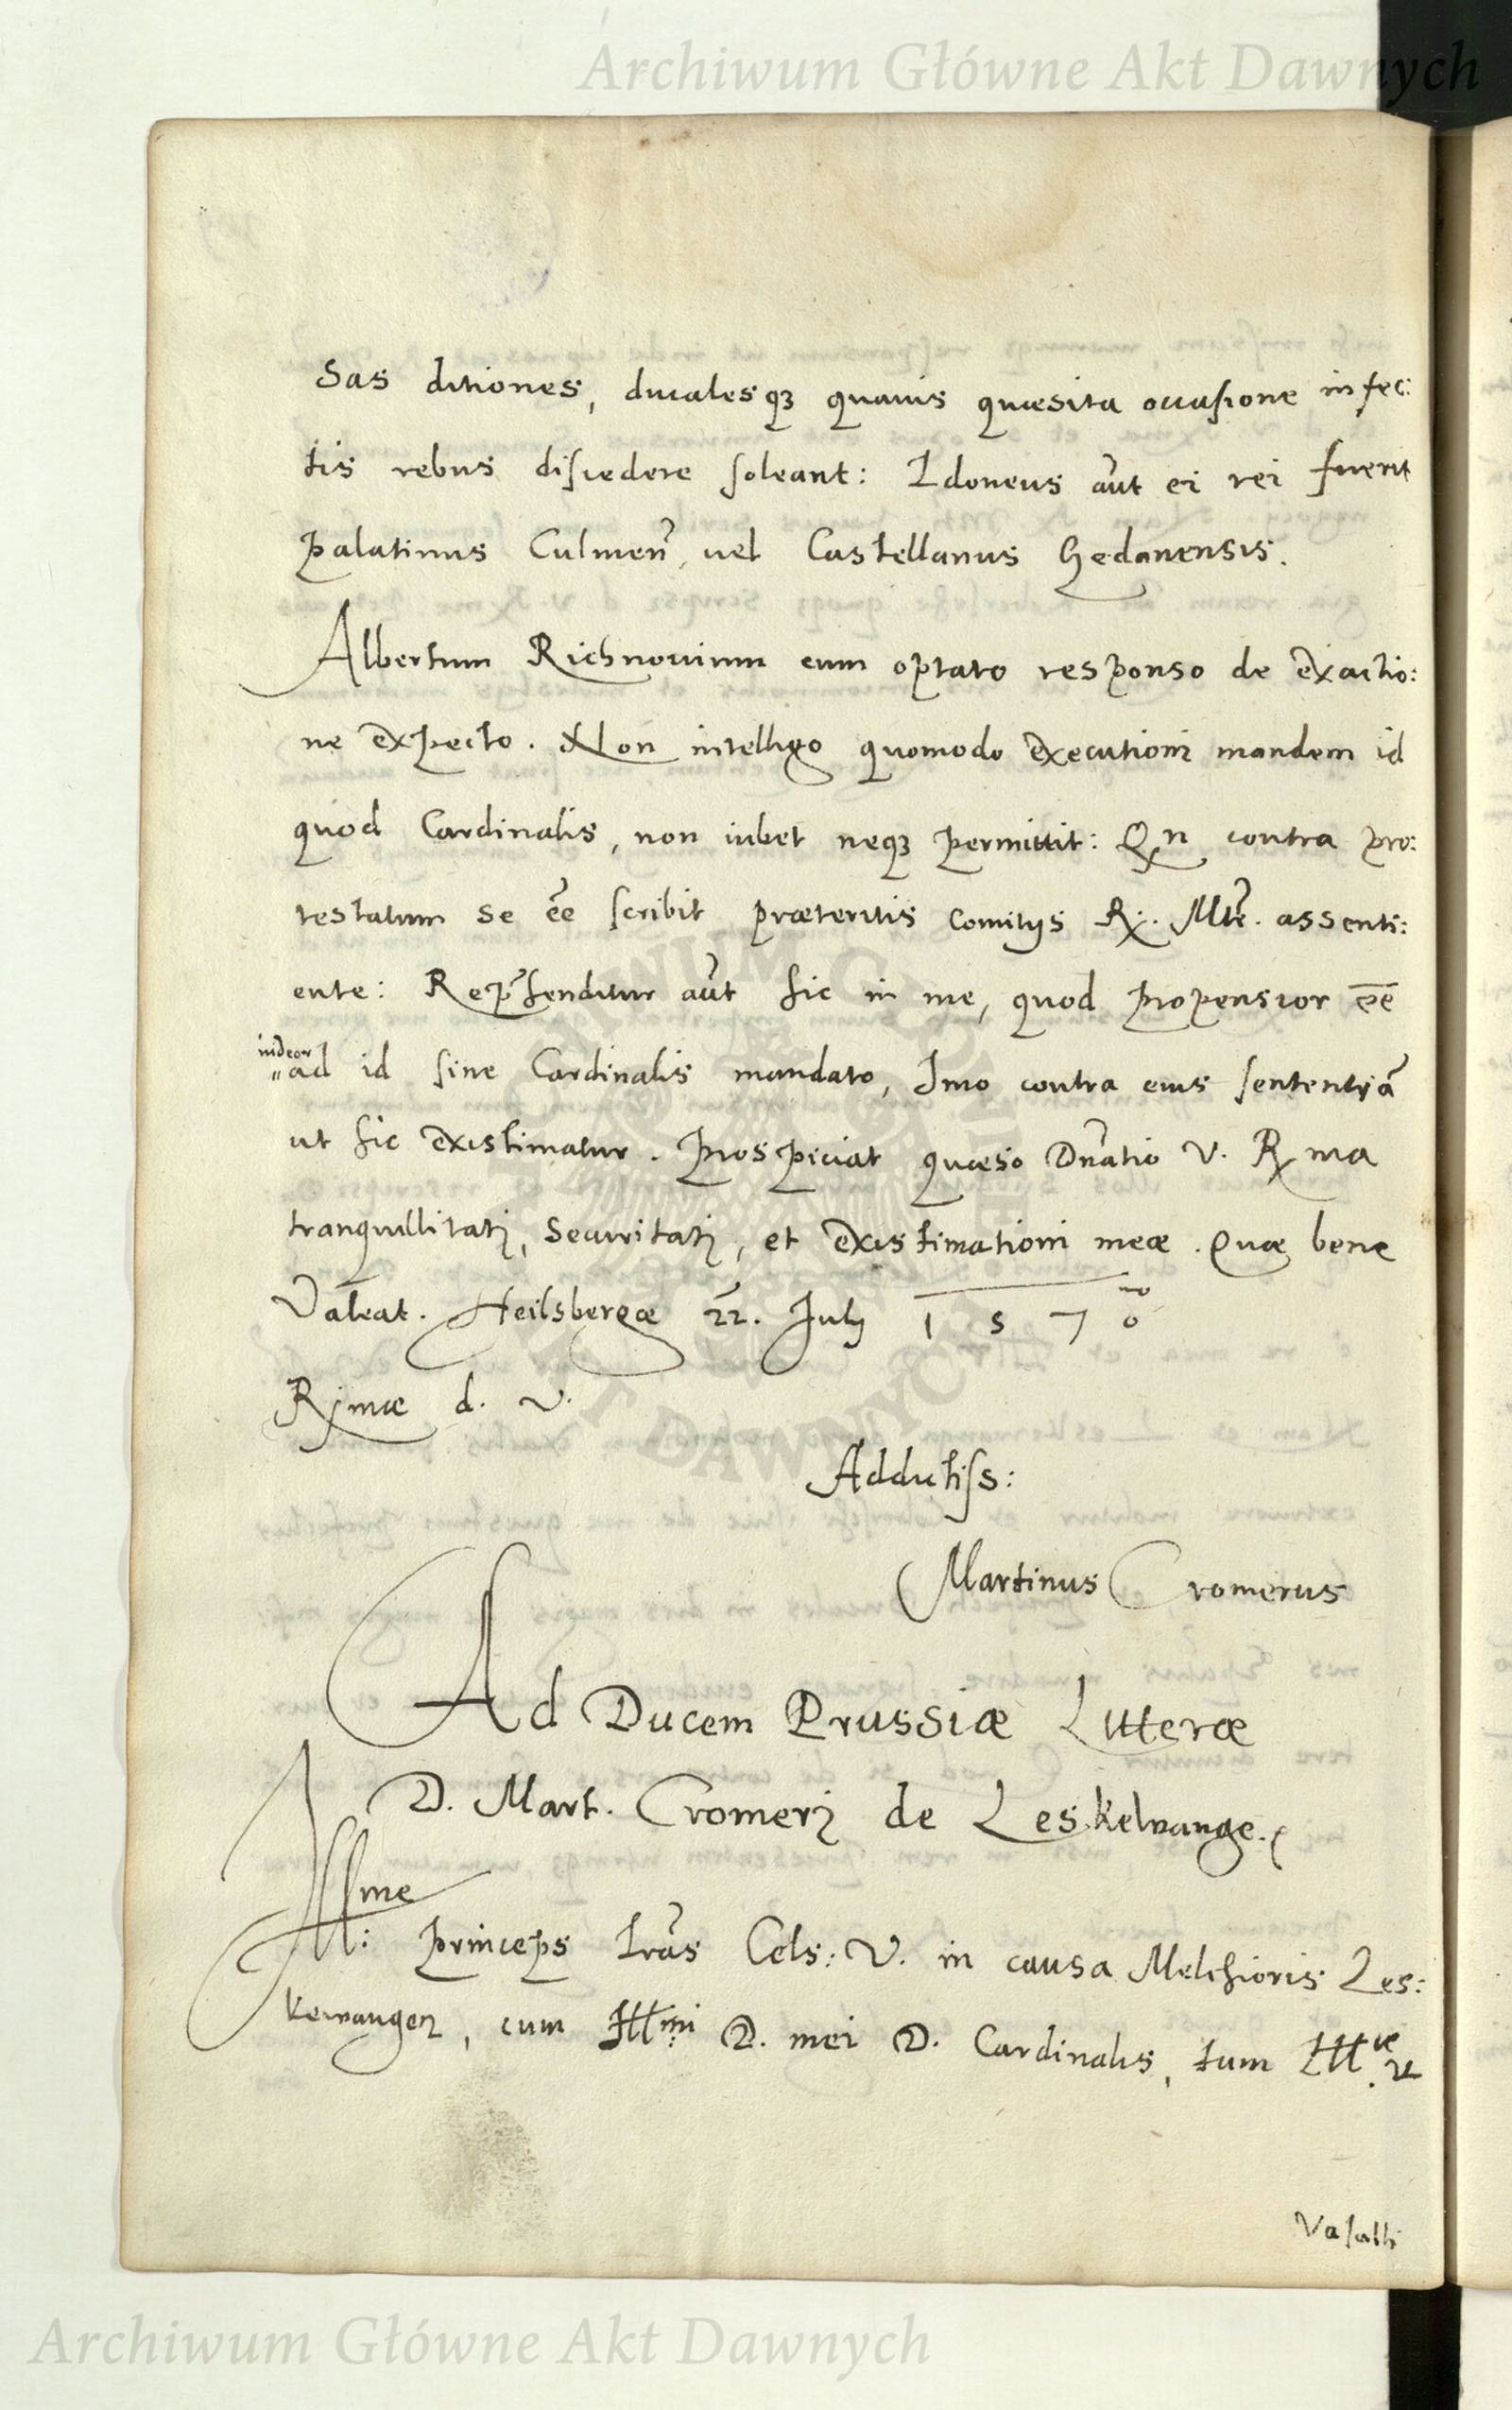 Archiwum Główne Akt Dawnych
sas ditiones, ducalesqꝫ quauis quæsita occasione infec:
tis rebus discedere soleant: Idoneus aũt ei rei fuerit
Palatinus Culmeñ, uel Castellanus Gedanensis.
Albertum Richnouium cum optato responso de exactio:
ne expecto. Non intelligo quomodo executioni mandem id
quod Cardinalis, non iubet neqꝫ permittit: Qn contra pro:
testatum se ẽe scribit præteritis Comitijs R. Mte. assenti:
ente: Rep̃henditur aũt hic in me, quod propensior ẽe
uideor
"ad id sine Cardinalis mandato, Imo contra eius sententiã
ut hic existimatur. Prospiciat quæso Dñatio V. Rma
tranquillitati, securitati, et existimationi meæ. Quæ bene
Valeat. Heilsbergæ 22. Julij 1570
Rmæ d. V.
Addictiss:
Martinus Cromerus
Ad Ducem Prussiæ Litteræ
D. Mart. Cromeri de Leskewange.
Illme
Princeps lrãs Cels: V. in causa Melchioris Les:
kewangen, cum Illmi D. mei D. Cardinalis, tum Illæ V
Vasalli
Archiwum Główne Akt Dawnych